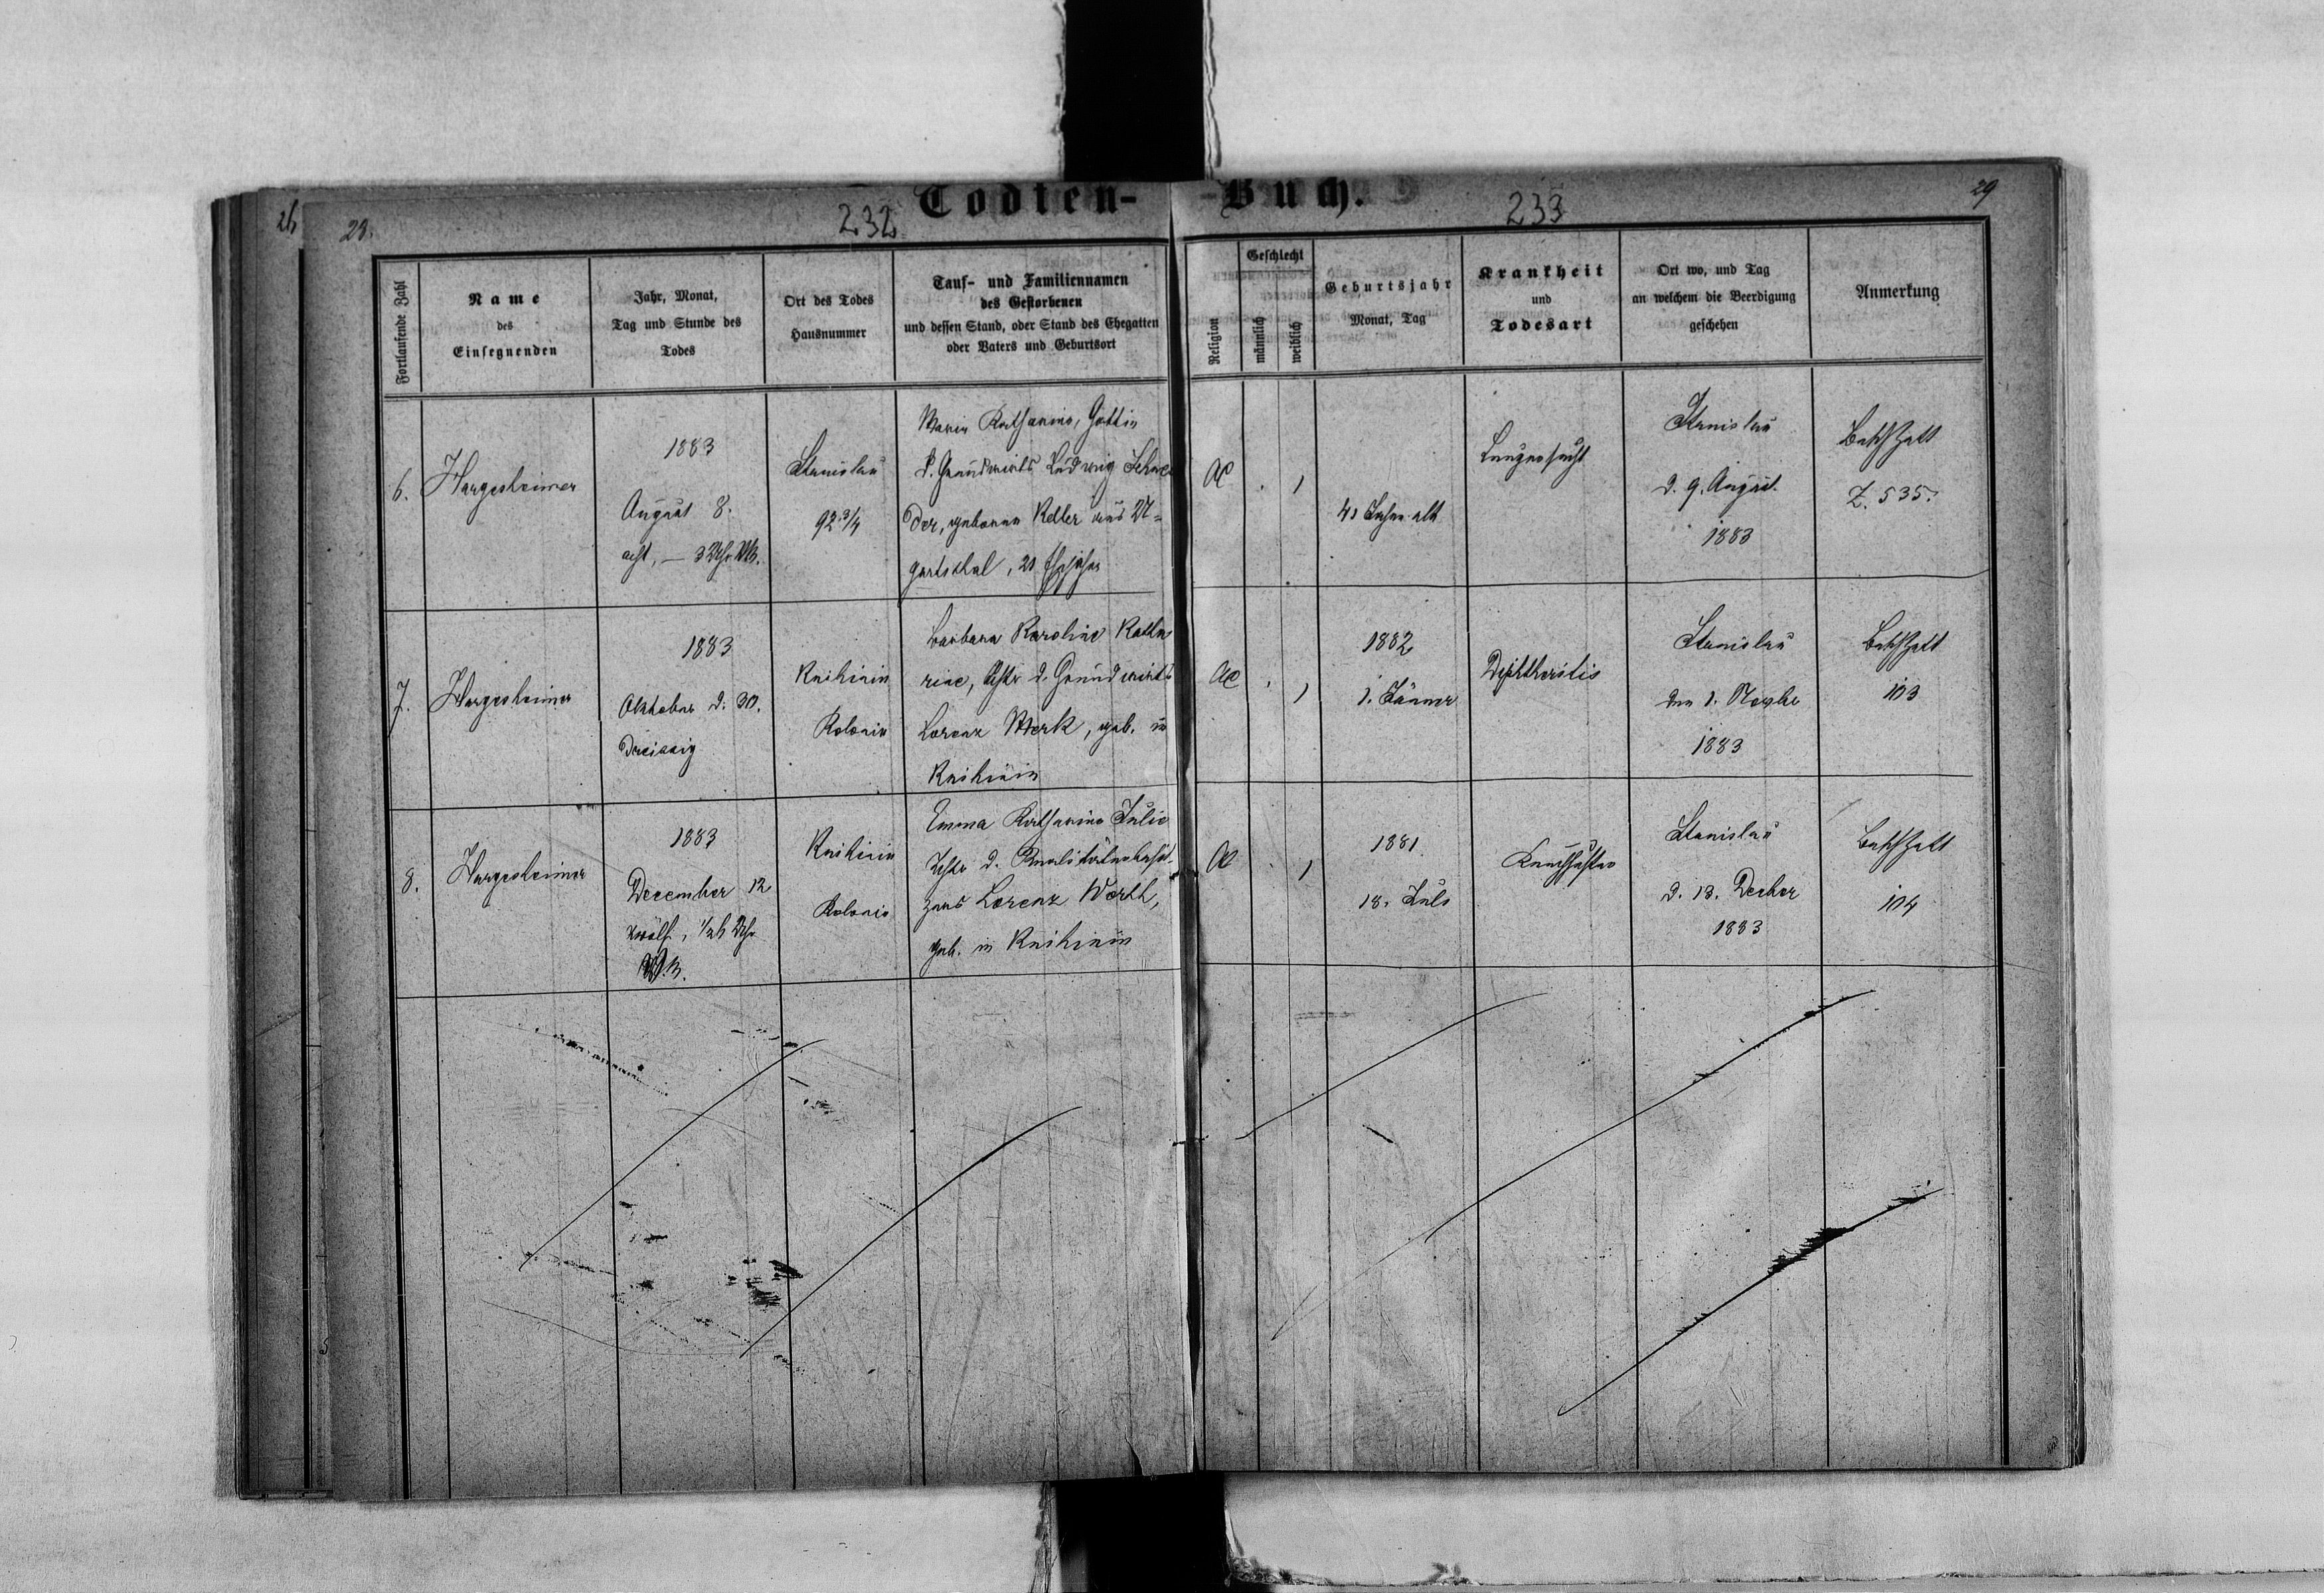 26
28.
232
Todten-
-Buch.
233
29
Fortlaufende Zahl
Name
des
Einsegnenden
Jahr, Monat,
Tag und Stunde des
Todes
Ort des Todes
Hausnummer
Tauf- und Familiennamen
des Gestorbenen
und dessen Stand, oder Stand des Ehegatten
oder Vaters und Geburtsort
Religion
Geschlecht
männlich
weiblich
Geburtsjahr
Monat, Tag
Krankheit
und
Todesart
Ort wo, und Tag
an welchem die Beerdigung
geschehen
Anmerkung
6.
Hargesheimer
1883
August 8.
acht, — 3 Uhr
Stanislau
92 3/4
Maria Katharina, Gattin
d. Grundwirts Ludwig
der, geborene Keller aus U-
gartsthal, 21
1
41 Jahre alt
Lungensucht
Stanislau
d. 9. August
1883
Z. 535.
7.
Hargesheimer
1883
Oktober d. 30.
Dreissig
Knihinin
Kolonie
Barbara Karoline Katha
rine, Tchtr d. Grundwirts
Lorenz Merk, geb. in
Knihinin
1
1882
1. Jänner
Diphtheritis
Stanislau
den 1. Novbe
1883
103
8.
Hargesheimer
1883
December 12
zwölf, 1/2 6 Uhr
Knihinin
Kolonie
Emma Katharina Julie
Tchtr d. Realitätenbesit-
zers Lorenz Werth,
geb. in Knihinin
1
1881
18. Juli
Keuchhusten
Stanislau
d. 13. Decber
1883
104